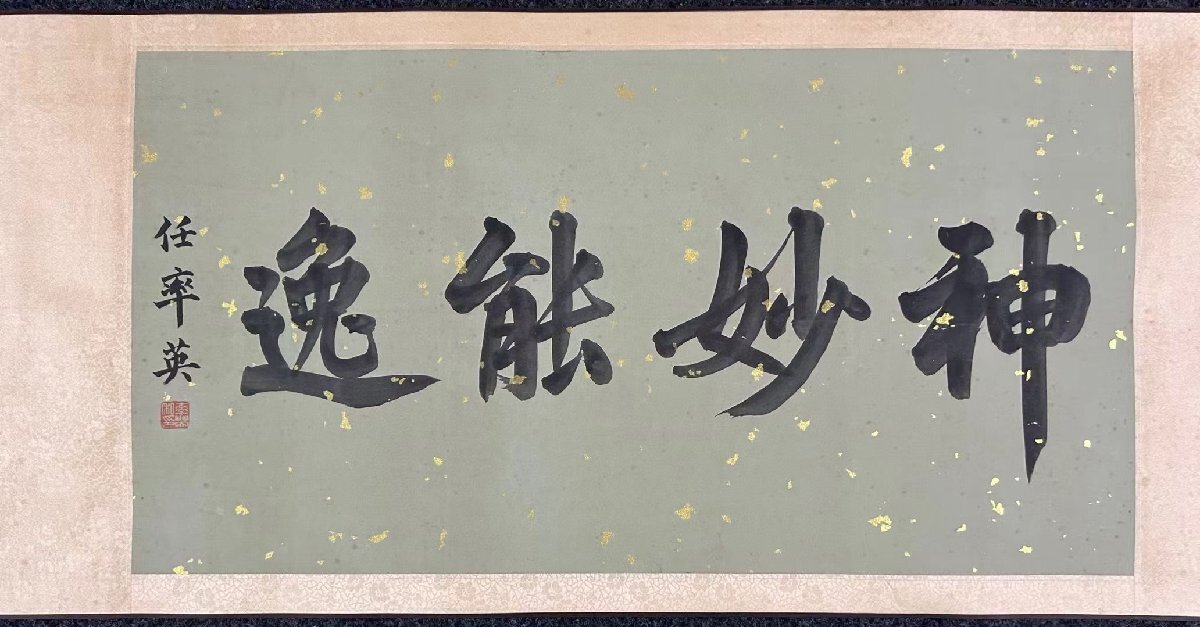 神妙能逸
任率英